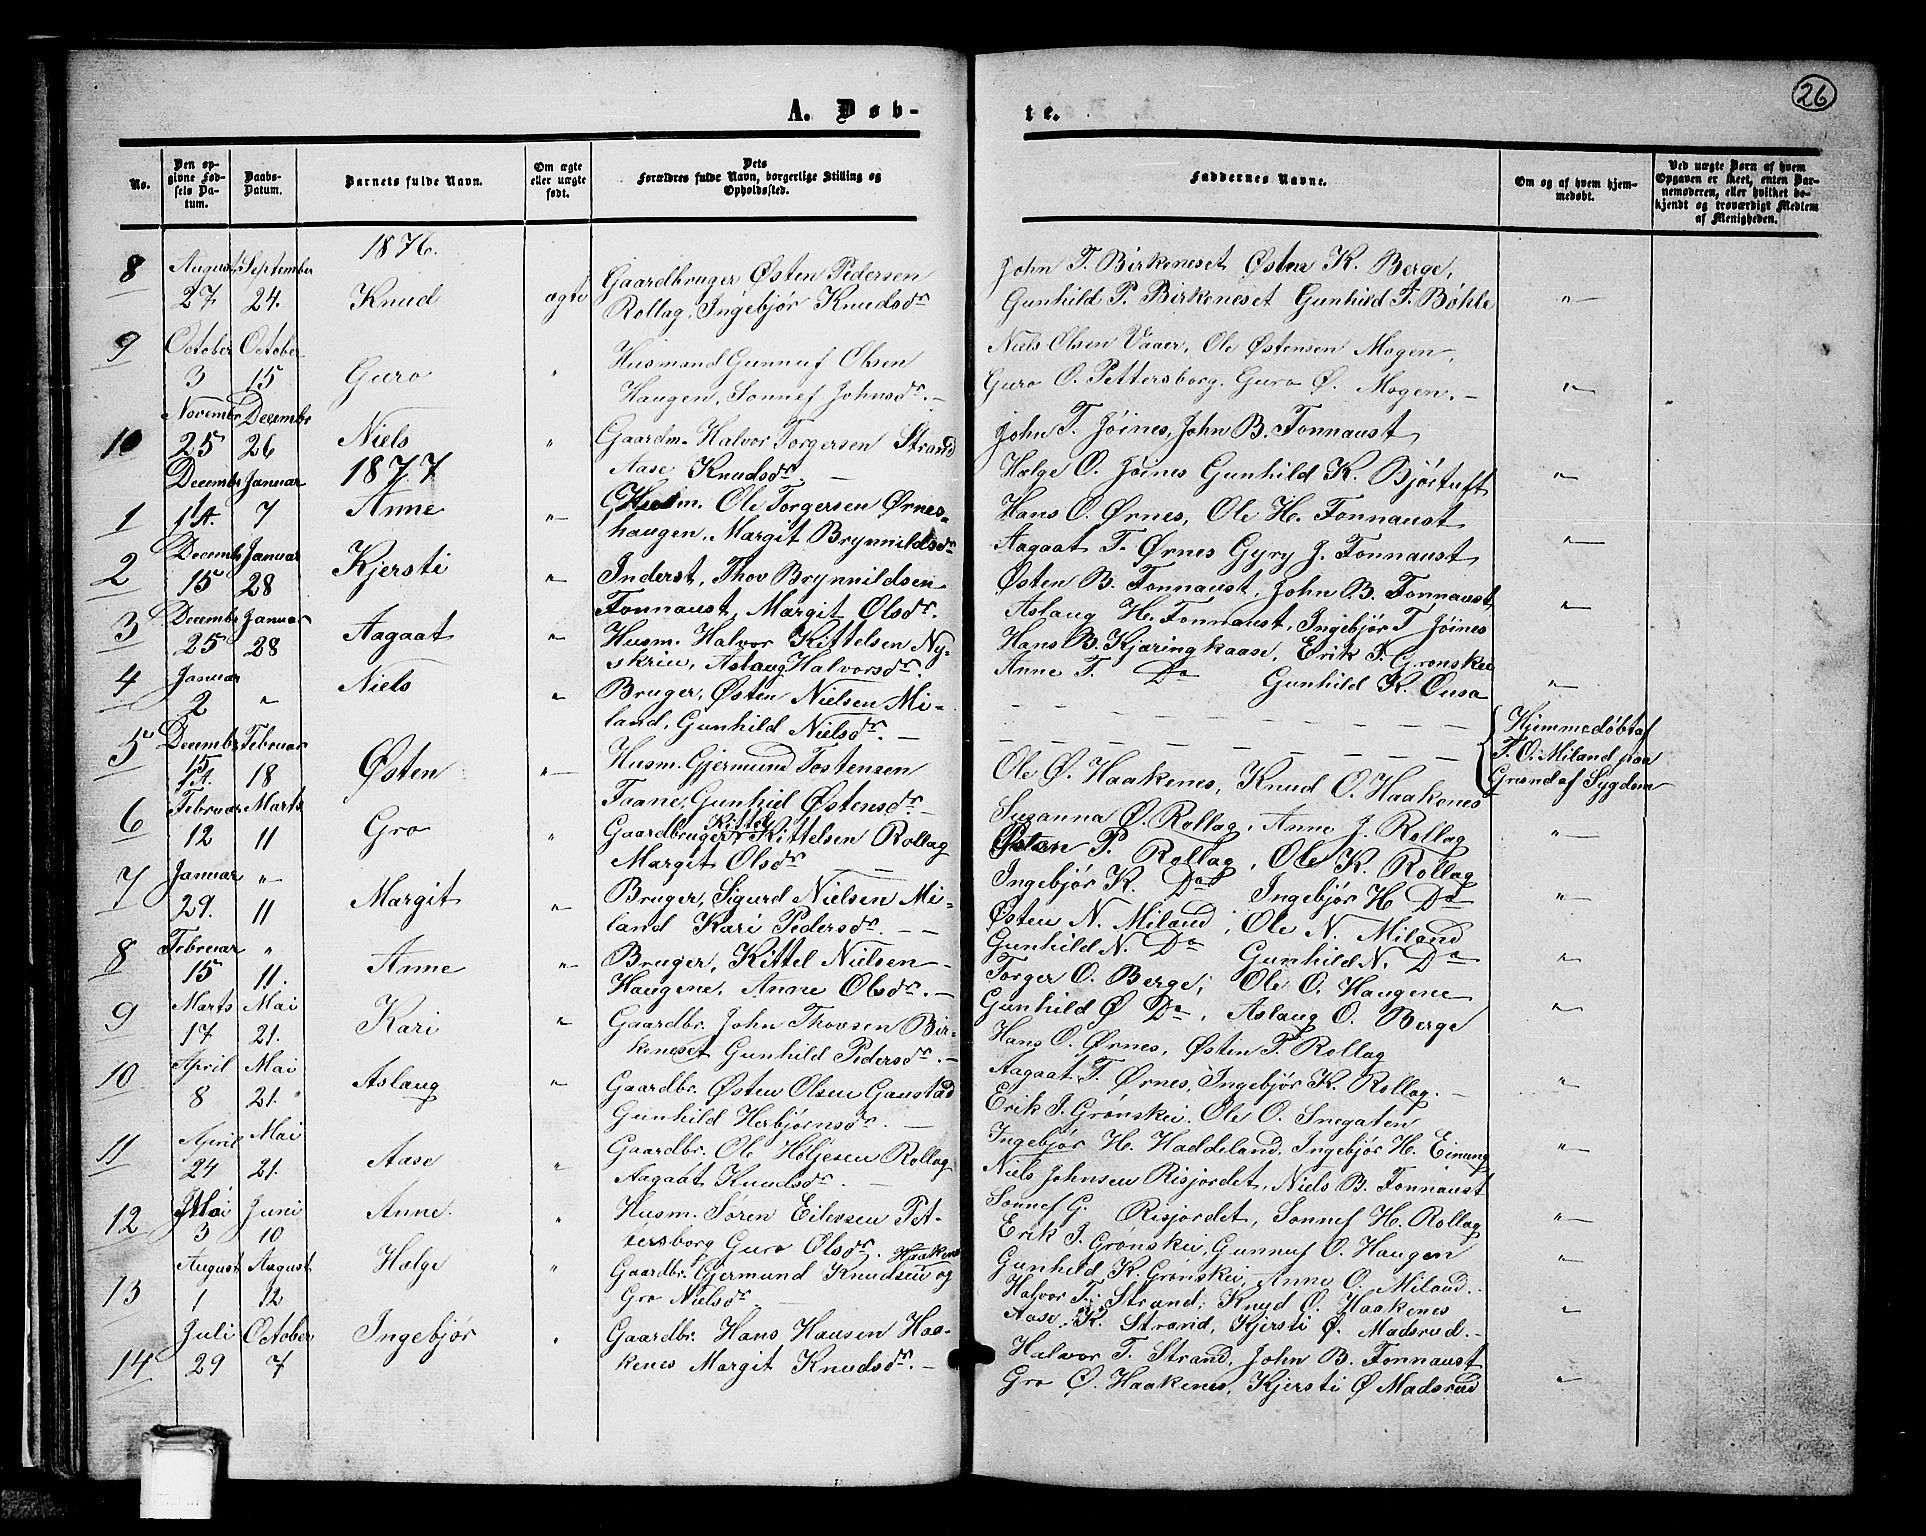 26
A. Døb-
te.
No.
Den op-
givne Fød-
sels Da-
tum.
Daabs-
Datum.
Barnets fulde Navn.
Om ægte
eller uægte
født.
Dets
Forældres fulde Navn, borgerlige Stilling og
Opholdssted.
Faddernes Navne.
Om og af hvem hjem-
medøbt.
Ved uægte Børn af hvem
Opgaven er skeet, enten Bar-
nemoderen, eller hvilket be-
kjendt og troværdigt Medlem
af Menigheden.
1876.
8 August September Gaardbruger Østen Pedersen John T. Birkeneset Østen K. Berge,
27 24. Knud ægte Rollag, Ingebjør Knudsdr Gunhild P. Birkeneset Gunhild T. Bøhle "
9 October October Husmand Gunnuf Olsen Niels Olsen Vaaer, Ole Østensen Mogen,
3 15 Guro " Haugen, Sonnef Johnsdr. - Guro O. Pettersborg, Guro Ø. Mogen. - "
Novembr Decembr
10 25 26 Niels " Gaardm. Halvor Torgersen Strand John T. Jøines, John B. Fonnaust
Aase Knudsdr. - Hælge O. Jøines Gunhild K. Bjørtuft "
1877
Decembr Januar
1 14. 7 Anne " Husm. Ole Torgersen Ørnes- Hans O. Ørnes, Ole H. Fonnaust
haugen, Margit Brynnildsdr Aagaat T. Ørnes Gyry J. Fonnaust "
Decembr Januar
2 15 28 Kjersti " Inderst, Thov Brynnildsen Østen B. Fonnaust, John B. Fonnaust
Fonnaust, Margit Olsdr. Aslaug H. Fonnaust, Ingebjør T. Jøines "
Decembr Januar
3 25 28 Aagaat " Husm. Halvor Kittelsen Ny- Hans B. Kjæringkaase, Erik J. Grønskei
skreu, Aslaug Halvorsdr. Anne T. Do Gunhild K. Ousa "
4 Januar
2 " Niels " Bruger, Østen Nielsen Mi- - - - - - - -
land, Gunhild Nielsdr. - - - - - - - - Hjemmedøbt af
T. O. Miland paa
Grund af Sygdom
5 Decembr Februar
15
14. 18 Østen " Husm. Gjermund Tostensen Ole Ø. Haakenes, Knud O. Haakenes
Faane, Gunhild Østensdr. - Susanna Ø. Rollag, Anne J. Rollag "
6 Februar Marts
12 11 Gro " Gaardbruger Kittel Kittelsen Rollag Østen P. Rollag, Ole K. Rollag
Margit Olsdr. - Ingebjør K. Do Ingebjør H. Do "
7 Januar "
29. 11 Margit " Bruger, Sigurd Nielsen Mi- Østen N. Miland, Ole N. Miland
land Kari Pedersdr. - - Gunhild N. Do Gunhild N. Do "
8 Februar "
15 11. Anne " Bruger, Kittel Nielsen Torger O. Berge, Ole O. Haugene
Haugene, Anne Olsdr. - Gunhild Ø Do, Aslaug O. Berge "
9 Marts Mai
17 21. Kari " Gaardbr. John Thovsen Bir- Hans O. Ørnes, Østen P. Rollag
keneset Gunhild Pedersdr. - Aagaat T. Ørnes, Ingebjør K. Rollag. - "
10 April Mai
8 21. " Aslaug " Gaardbr. Østen Olsen Gaustad Erik J. Grønskei, Ole O. Snegaten
Gunhild Herbjørnsdr. - Ingebjør H. Haddeland, Ingebjør H. Einung "
11 April Mai
24 21. Aase " Gaardbr. Ole Høljesen Rollag Niels Johnsen Risjordet, Niels B. Fonnaust
Aagaat Knudsdr. - Sonnef G. Risjordet, Sonnef H. Rollag "
12 Mai Juni
3 10 Anne. " Husm. Søren Eilevsen Pet- Erik J. Grønskei, Gunnuf O. Haugen
tersborg Guro Olsdr. Gunhild K. Grønskei, Anne O. Miland. "
13 August August
1 12 Hælge " Gaardbr. Gjermund Knudsen Haakenes og Halvor T. Strand, Knud O. Haakenes
Gro Nielsdr. - Aase K. Strand, Kjersti Ø. Madsrud. - "
14 Juli October
29 7 Ingebjør " Gaardbr. Hans Hansen Haa- Halvor T. Strand, John B. Fonnaust
kenes Margit Knudsdr. - Gro O. Haakenes, Kjersti Ø Madsrud "